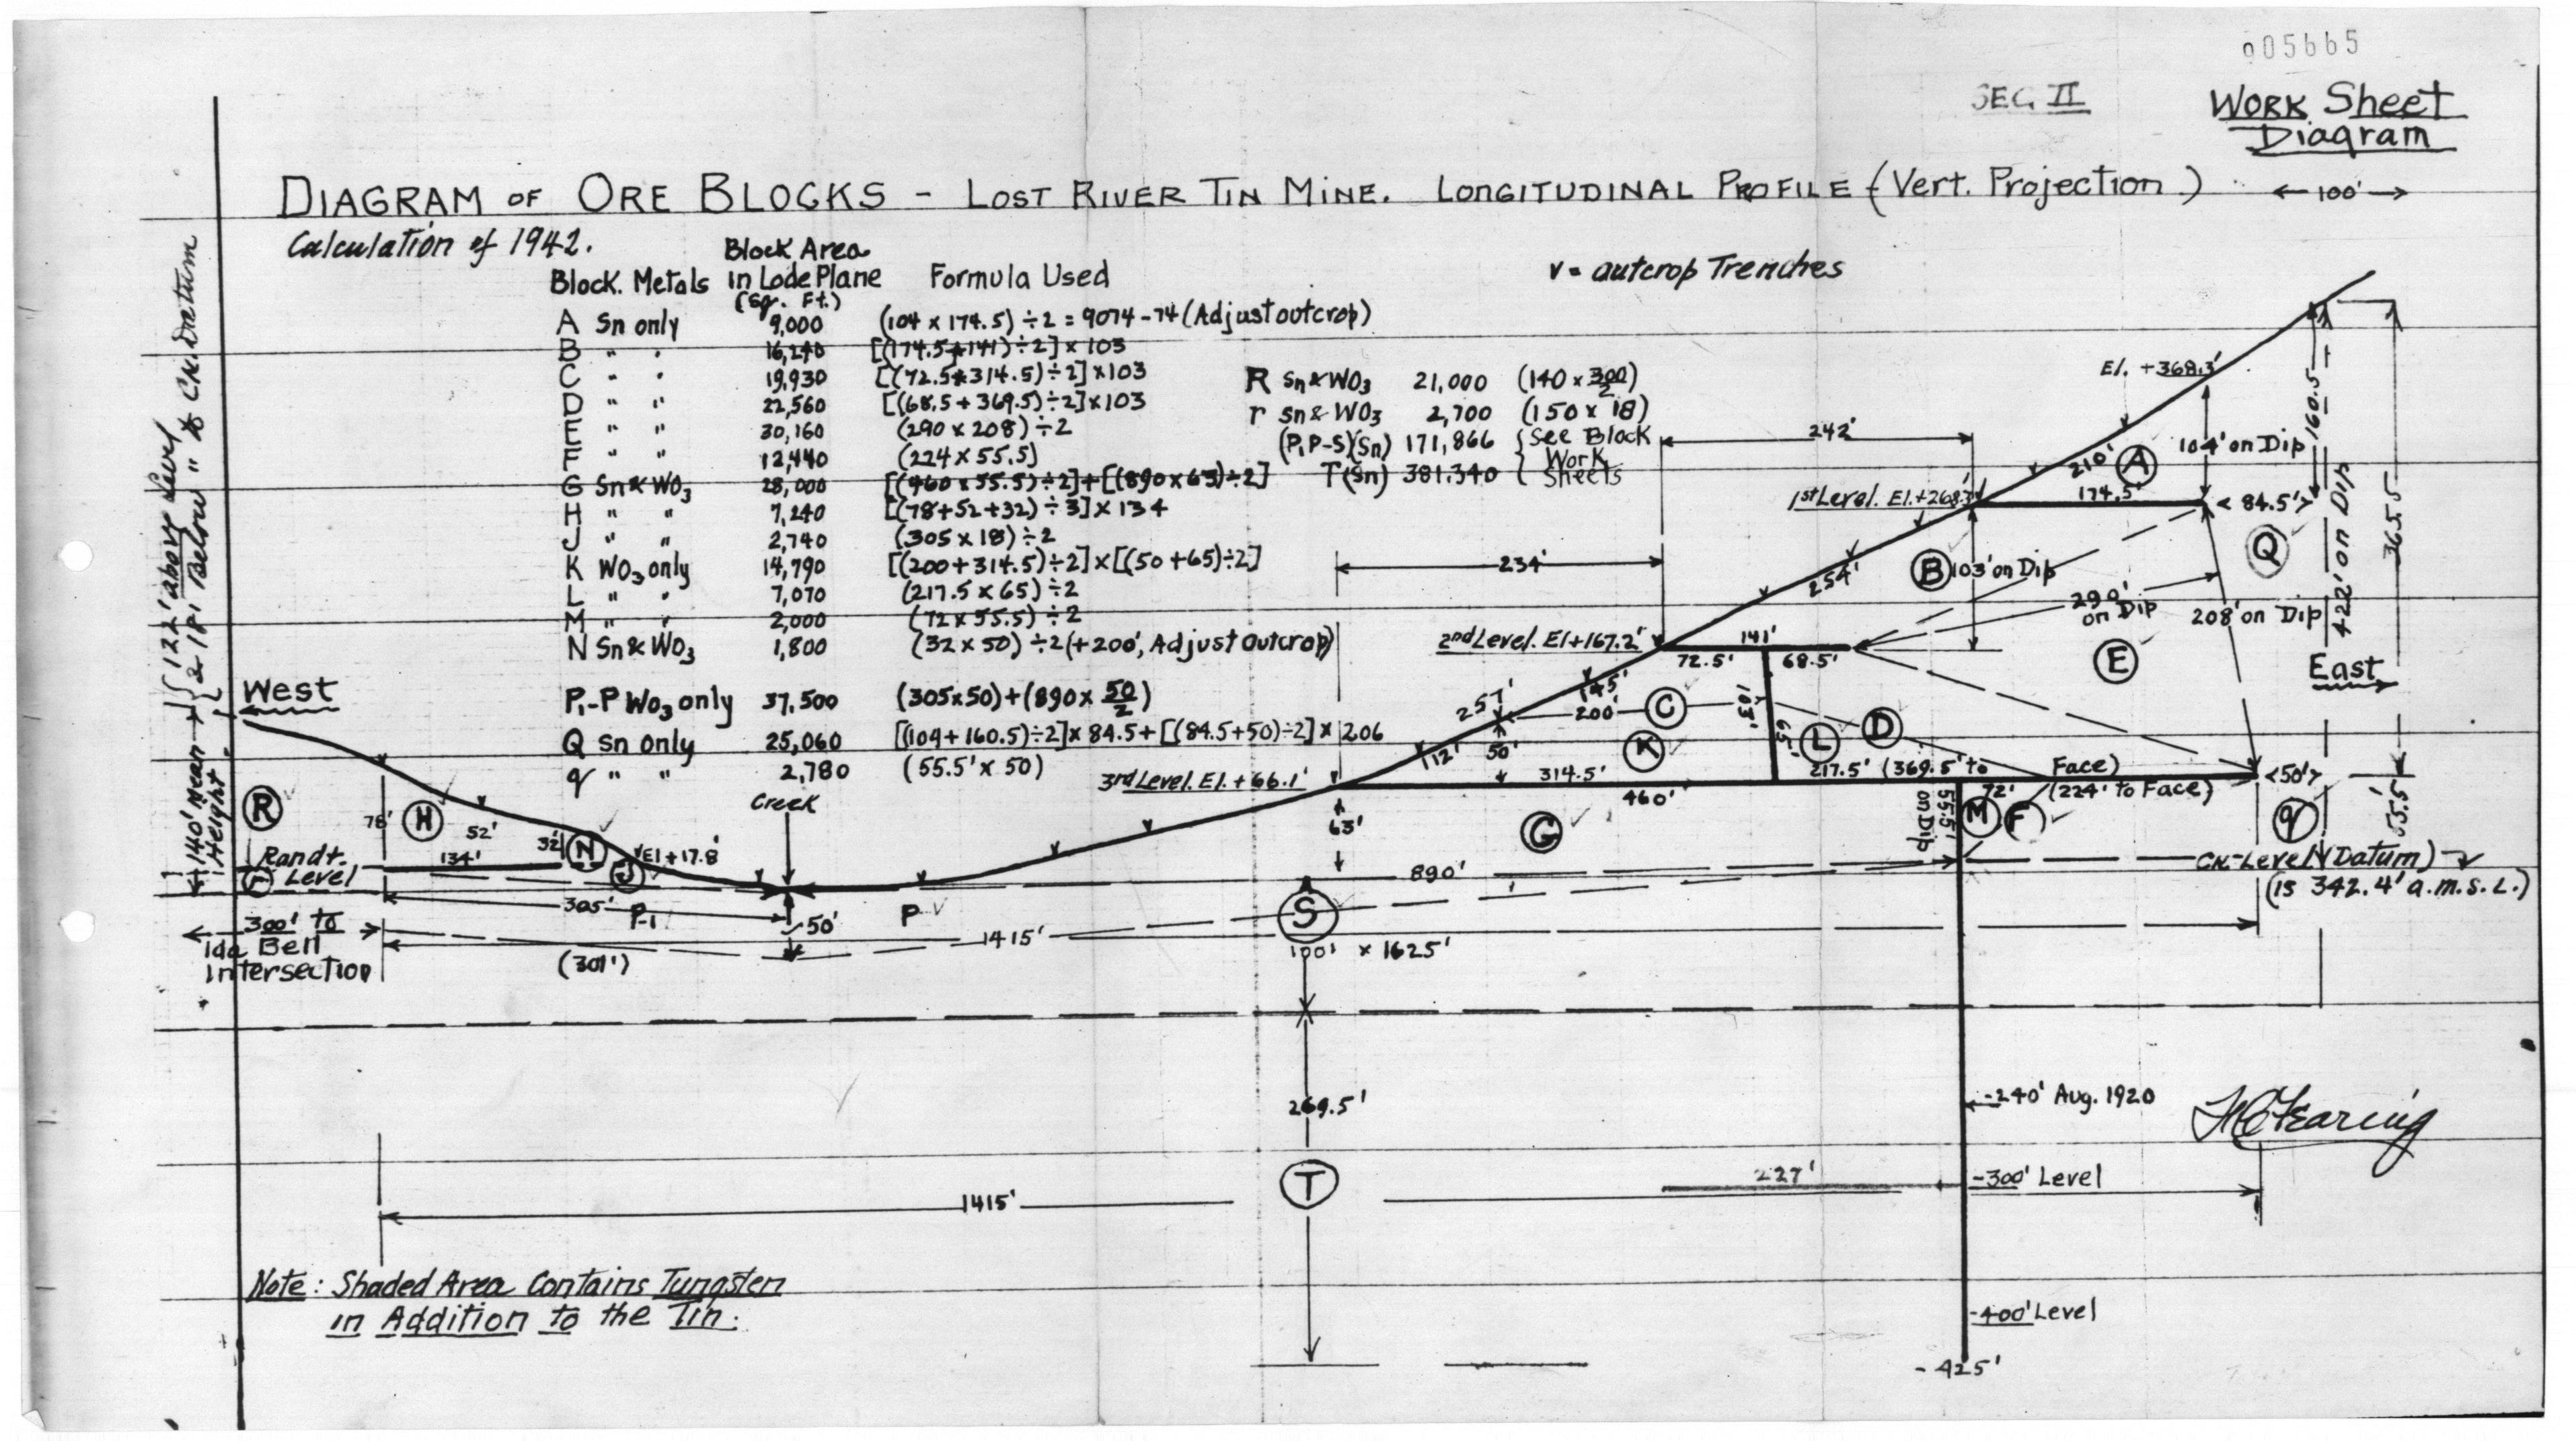 005665
SEC II
Work Sheet
Diagram
DIAGRAM OF ORE BLOCKS - LOST RIVER TIN MINE. LONGITUDINAL PROFILE (Vert. Projection)
←100'→
Calculation of 1942.
v = outcrop Trenches
Block Area
Block. Metals in Lode Plane Formula Used
(Sq. Ft.)
A Sn only 9,000 (104 x 174.5) ÷ 2 = 9074 - 74 (Adjust outcrop)
B " " 16,240 [(174.5+141) ÷ 2] x 103
C " " 19,930 [(72.5+314.5) ÷ 2] x 103
D " " 22,560 [(68.5 + 369.5) ÷ 2] x 103
E " " 30,160 (290 x 208) ÷ 2
F " " 12,440 (224 x 55.5)
G Sn & WO3 28,000 [(460 x 55.5) ÷ 2] + [(890 x 63) ÷ 2]
H " " 7,240 [(78+52+32) ÷ 3] x 134
J " " 2,740 (305 x 18) ÷ 2
K WO3 only 14,790 [(200+314.5) ÷ 2] x [(50+65) ÷ 2]
L " " 7,070 (217.5 x 65) ÷ 2
M " " 2,000 (72 x 55.5) ÷ 2
N Sn & WO3 1,800 (32 x 50) ÷ 2 (+200', Adjust Outcrop)
P1-P WO3 only 37,500 (305x50) + (890 x 50/2)
Q Sn only 25,060 [(104+160.5) ÷ 2] x 84.5 + [(84.5+50) ÷ 2] x 206
q " " 2,780 (55.5' x 50)
R Sn & WO3 21,000 (140 x 300/2)
r Sn & WO3 2,700 (150 x 18)
(P1P-S)(Sn) 171,866 { See Block
Work
T (Sn) 381,340 Sheets
122' above Level
218' Below " to Ck. Datum
140' Mean Height
West
East
El. +368.3'
160.5
104' on Dip
210'
A
174.5'
84.5'
365.5
422' on Dip
242'
1st Level. El. +268.3'
Q
B
103' on Dip
254'
234'
290'
on Dip
208' on Dip
2nd Level. El +167.2'
141'
72.5'
68.5'
E
145'
257'
200'
C
103'
65'
50'
K
L
D
112'
3rd Level. El. + 66.1'
314.5'
217.5' (369.5' to Face)
460'
72'
(224' to Face)
50'
55.5'
on Dip
M
F
q
55.5'
63'
G
Creek
R
78'
H
52'
32'
N
J
El +17.8'
Randt.
Level
r
134'
890'
Ck-Level (Datum)
(is 342.4' a.m.s.l.)
305'
P-1
50'
P
S
100' x 1625'
300' to
Ida Bell
Intersection
(301')
1415'
269.5'
-240' Aug. 1920
T
227'
-300' Level
1415'
-400' Level
-425'
Note: Shaded Area Contains Tungsten
in Addition to the Tin.